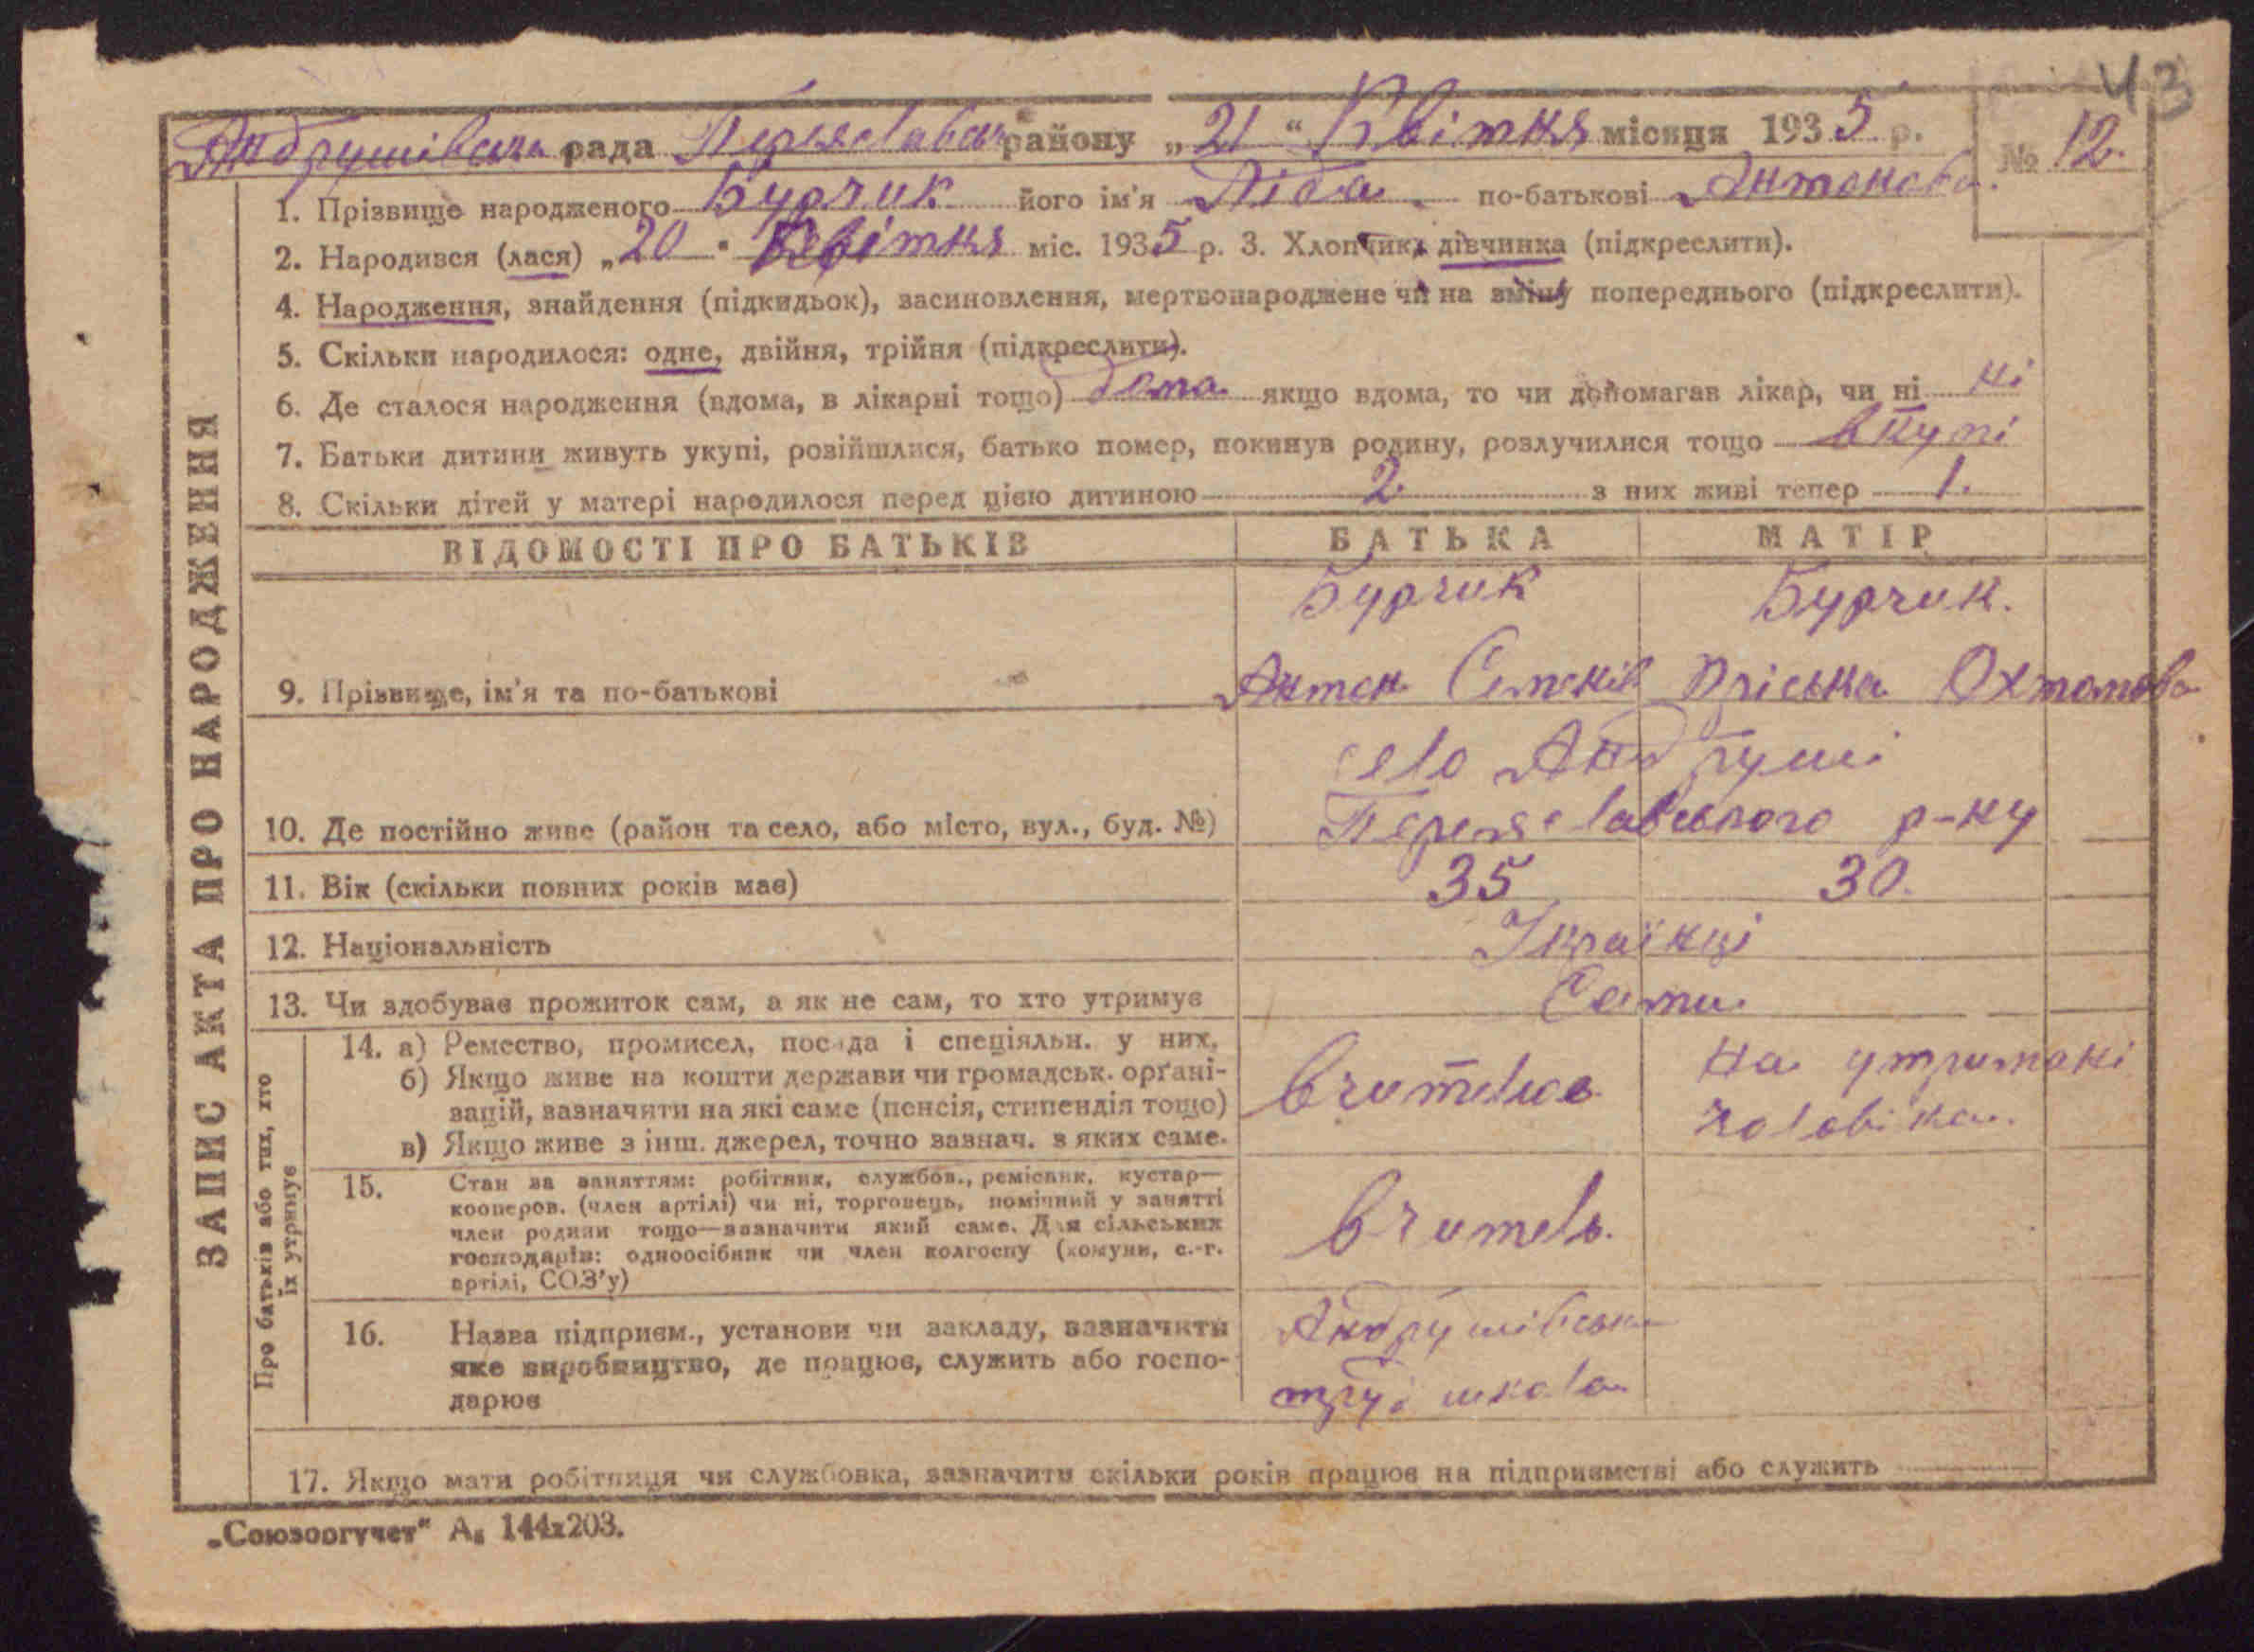 43
Андрушівська рада Переяславськ району „21“ Квітня місяця 1935 р. № 12.
1. Прізвище народженого Бурчик його ім'я Ліда. по-батькові Антонова.
2. Народився (лася) „20“ Квітня міс. 1935 р. 3. Хлопчик, дівчинка (підкреслити).
4. Народження, знайдення (підкидьок), засиновлення, мертвонароджене чи на зміну попереднього (підкреслити).
5. Скільки народилося: одне, двійня, трійня (підкреслити).
6. Де сталося народження (вдома, в лікарні тощо) дома якщо вдома, то чи допомагав лікар, чи ні ні
7. Батьки дитини живуть укупі, розійшлися, батько помер, покинув родину, розлучилися тощо вкупі
8. Скільки дітей у матері народилося перед цією дитиною 2. з них живі тепер 1.
ЗАПИС АКТА ПРО НАРОДЖЕННЯ
ВІДОМОСТІ ПРО БАТЬКІВ БАТЬКА МАТІР
Бурчик Бурчик.
9. Прізвище, ім'я та по-батькові Антон Пріська
село Андруші
10. Де постійно живе (район та село, або місто, вул., буд. №) Переяславського р-ну
11. Вік (скільки повних років має) 35 30.
12. Національність Українці
13. Чи здобуває прожиток сам, а як не сам, то хто утримує Сами
Про батьків або тих, хто
їх утримує
14. а) Ремество, промисел, посада і спеціяльн. у них.
б) Якщо живе на кошти держави чи громадськ. орґані-
зацій, зазначити на які саме (пенсія, стипендія тощо)
в) Якщо живе з інш. джерел, точно зазнач. з яких саме.
на утримані
чоловіка.
15. Стан за заняттям: робітник, службов., ремісник, кустар—
кооперов. (член артілі) чи ні, торговець, помічний у занятті
член родини тощо—зазначити який саме. Для сільських
господарів: одноосібник чи член колгоспу (комуни, с.-г.
артілі, СОЗ'у)
вчитель.
16. Назва підприєм., установи чи закладу, зазначити
яке виробництво, де працює, служить або госпо-
дарює
Андрушівська
школа
17. Якщо мати робітниця чи службовка, зазначити скільки років працює на підприємстві або служить
„Союзоргучет“ А₅ 144х203.